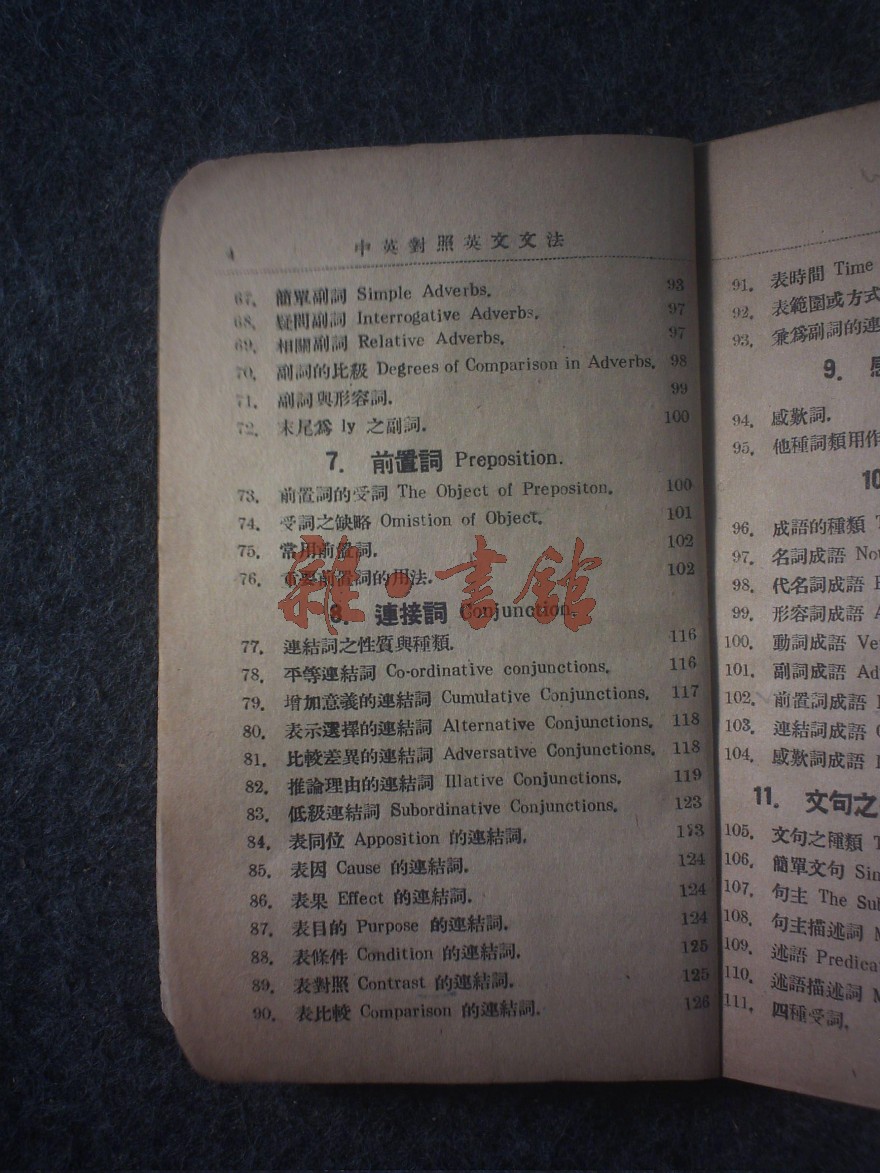 4 中英對照英文文法
67. 簡單副詞 Simple Adverbs. 93
68. 疑問副詞 Interrogative Adverbs. 97
69. 相關副詞 Relative Adverbs. 97
70. 副詞的比級 Degrees of Comparison in Adverbs. 98
71. 副詞與形容詞. 99
72. 末尾爲 ly 之副詞. 100
7. 前置詞 Preposition.
73. 前置詞的受詞 The Object of Prepositon. 100
74. 受詞之缺略 Omistion of Object. 101
75. 常用前置詞. 102
76. 重要前置詞的用法. 102
雜·書館
8. 連接詞 Conjunction.
77. 連結詞之性質與種類. 116
78. 平等連結詞 Co-ordinative conjunctions. 116
79. 增加意義的連結詞 Cumulative Conjunctions. 117
80. 表示選擇的連結詞 Alternative Conjunctions. 118
81. 比較差異的連結詞 Adversative Conjunctions. 118
82. 推論理由的連結詞 Illative Conjunctions. 119
83. 低級連結詞 Subordinative Conjunctions. 123
84. 表同位 Apposition 的連結詞. 123
85. 表因 Cause 的連結詞. 124
86. 表果 Effect 的連結詞. 124
87. 表目的 Purpose 的連結詞. 124
88. 表條件 Condition 的連結詞. 125
89. 表對照 Contrast 的連結詞. 125
90. 表比較 Comparison 的連結詞. 126
91. 表時間 Time
92. 表範圍或方式
93. 兼爲副詞的連
9. 感
94. 感歎詞.
95. 他種詞類用作
10
96. 成語的種類 T
97. 名詞成語 Nou
98. 代名詞成語
99. 形容詞成語 A
100. 動詞成語 Ve
101. 副詞成語 Ad
102. 前置詞成語
103. 連結詞成語
104. 感歎詞成語
11. 文句之
105. 文句之種類 T
106. 簡單文句 Sim
107. 句主 The Sub
108. 句主描述詞 M
109. 述語 Predica
110. 述語描述詞 M
111. 四種受詞.